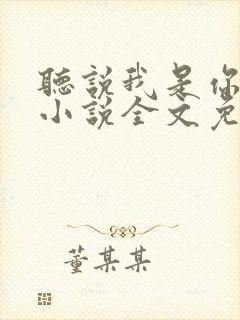 聽說我是你
小說全文免
董某某